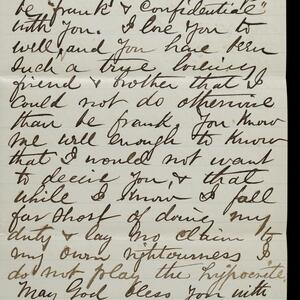 be "frank & confidential"
with you. I love you to
well, and you have been
such a true loving
friend & brother that I
could not do otherwise
than be frank. You know
me well enough to know
that I would not want
to decive you, & that
while I know I fall
far short of doing my
duty & lay no claim to
my own rightourness I
do not play the hypocrite.
May God bless you with